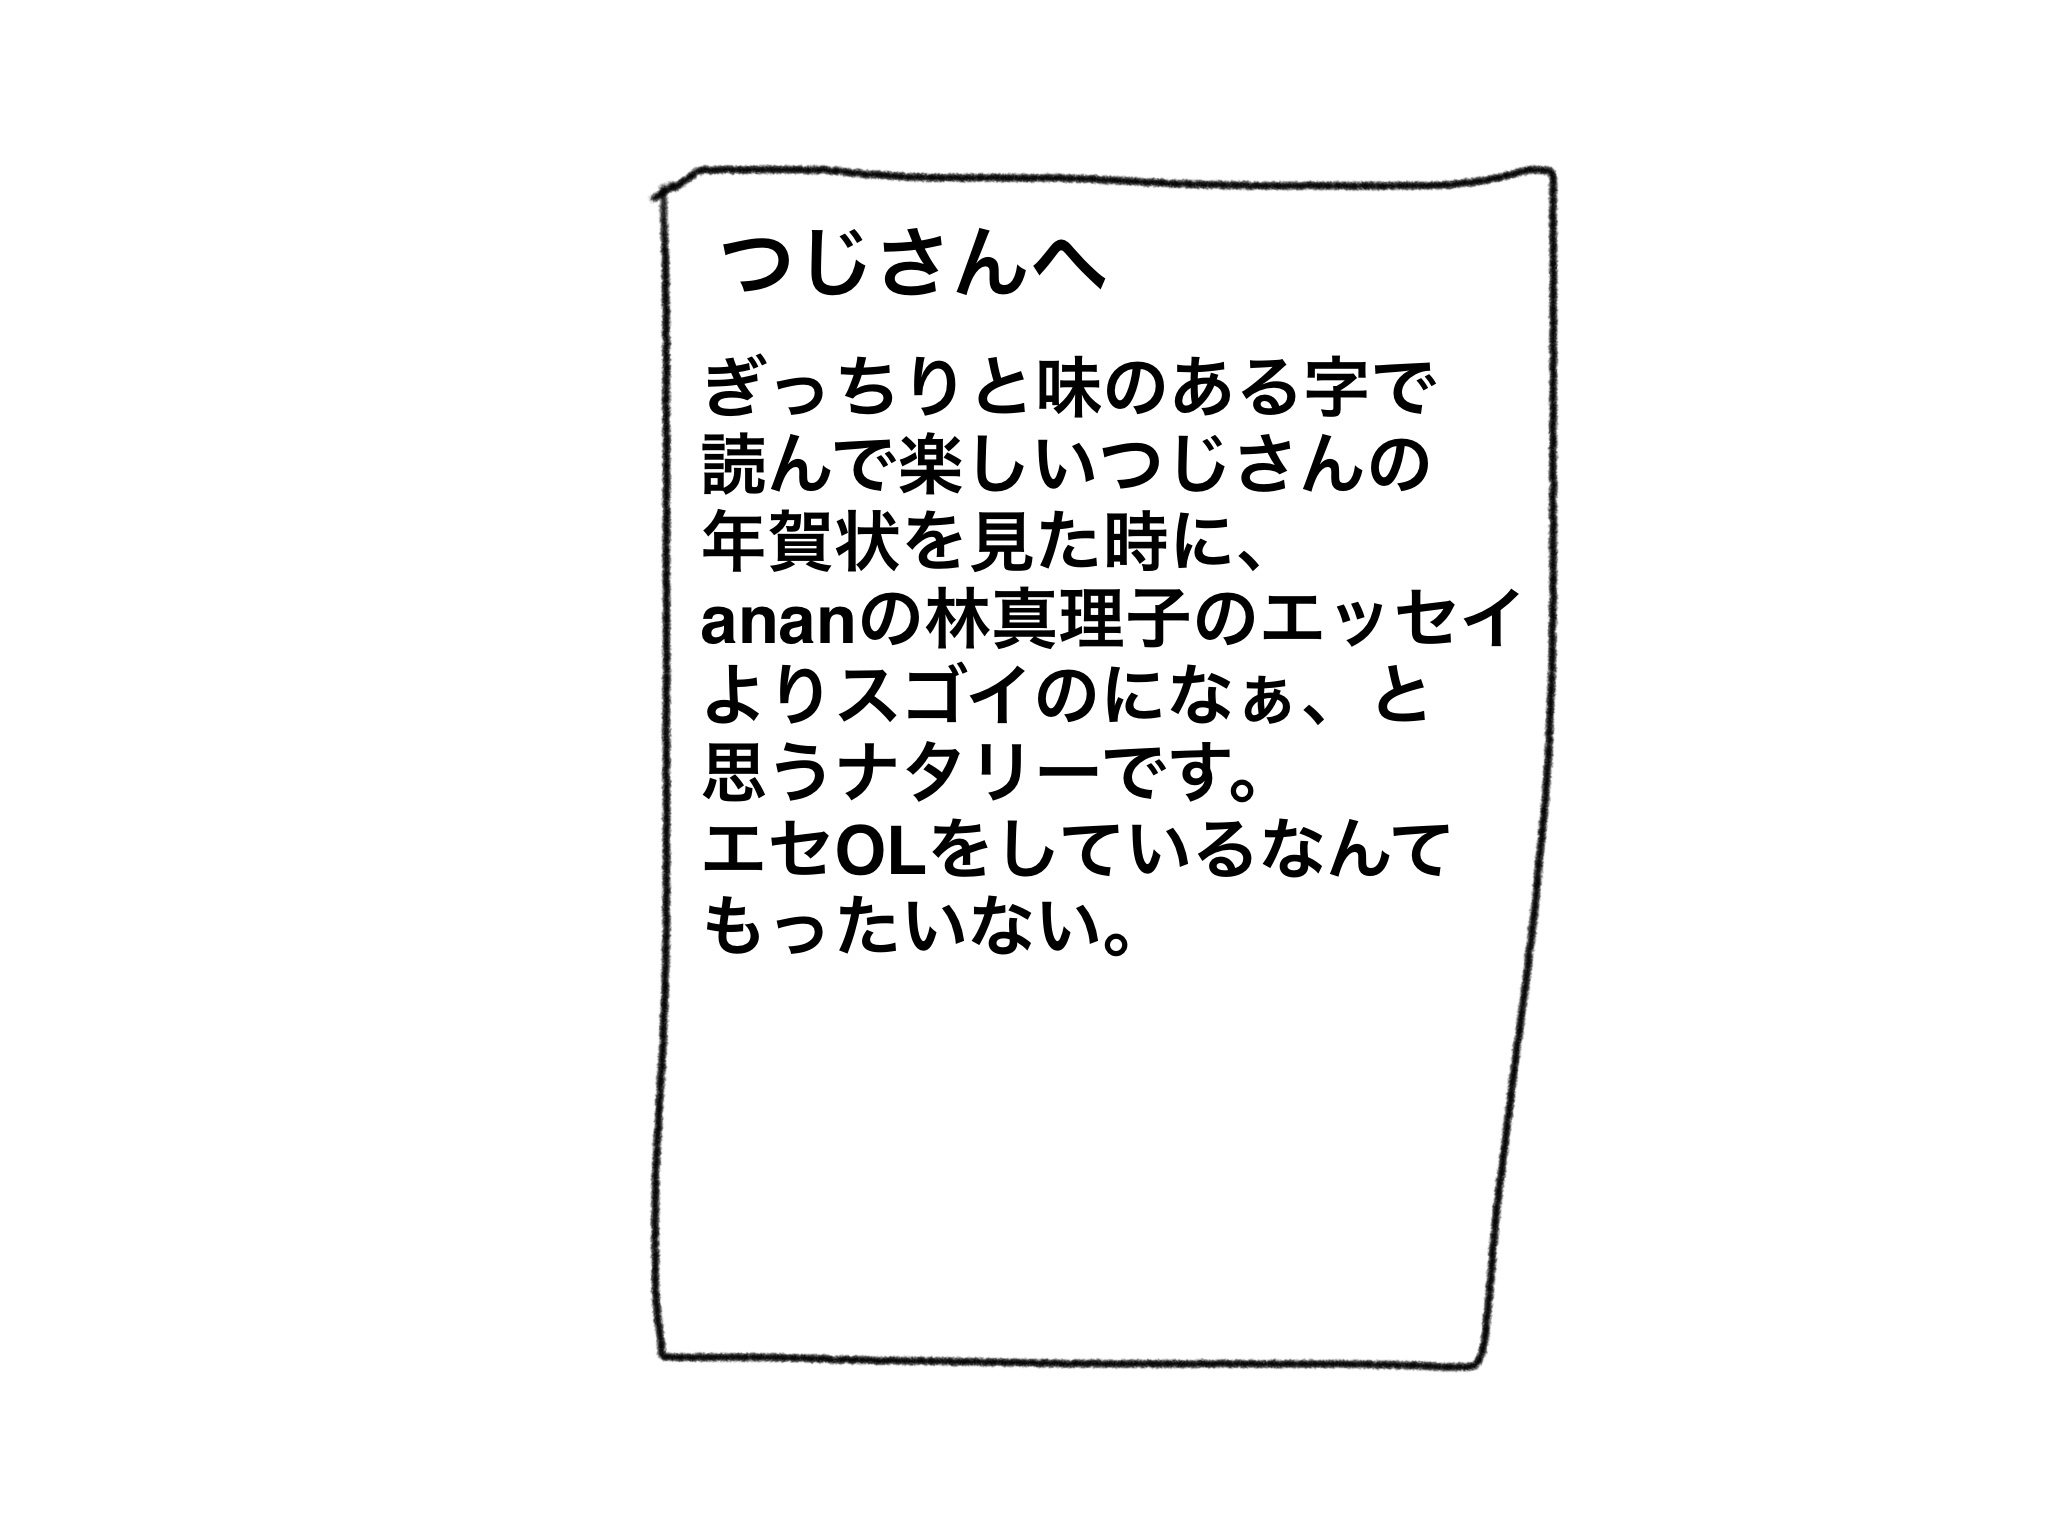 つじさんへ
ぎっちりと味のある字で
読んで楽しいつじさんの
年賀状を見た時に、
ananの林真理子のエッセイ
よりスゴイのになぁ、と
思うナタリーです。
エセOLをしているなんて
もったいない。